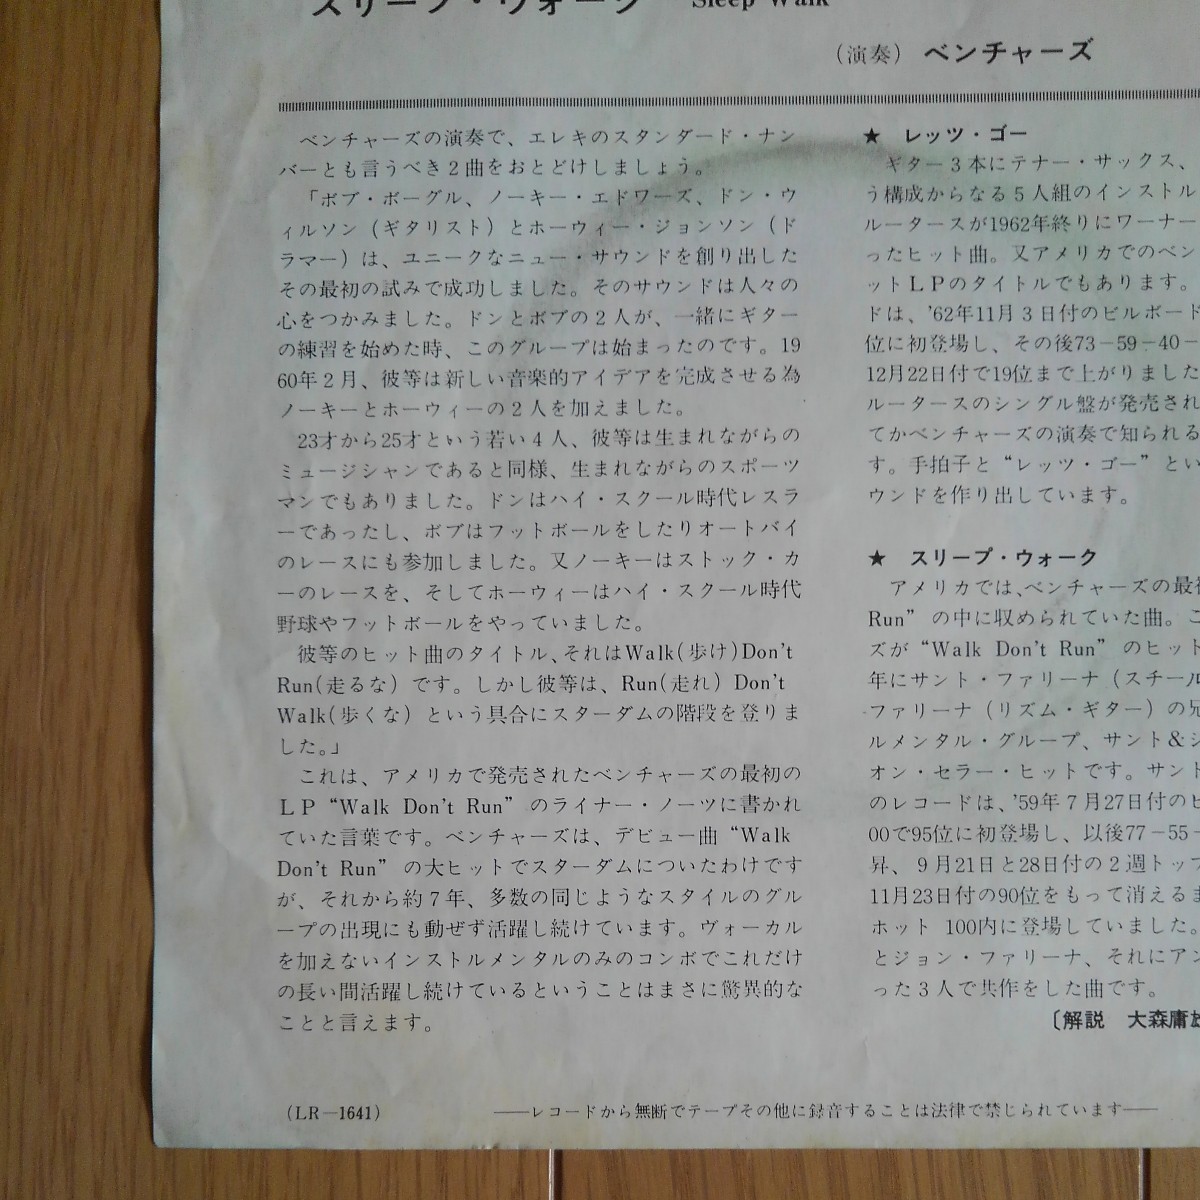 スリープ・ウォーク Sleep Walk
(演奏) ベンチャーズ
ベンチャーズの演奏で、エレキのスタンダード・ナン
バーとも言うべき2曲をおとどけしましょう。
「ボブ・ボーグル、ノーキー・エドワーズ、ドン・ウ
ィルソン(ギタリスト)とホーウィー・ジョンソン(ド
ラマー)は、ユニークなニュー・サウンドを創り出した
その最初の試みで成功しました。そのサウンドは人々の
心をつかみました。ドンとボブの2人が、一緒にギター
の練習を始めた時、このグループは始まったのです。19
60年2月、彼等は新しい音楽的アイデアを完成させる為
ノーキーとホーウィーの2人を加えました。
23才から25才という若い4人、彼等は生まれながらの
ミュージシャンであると同様、生まれながらのスポーツ
マンでもありました。ドンはハイ・スクール時代レスラ
ーであったし、ボブはフットボールをしたりオートバイ
のレースにも参加しました。又ノーキーはストック・カ
ーのレースを、そしてホーウィーはハイ・スクール時代
野球やフットボールをやっていました。
彼等のヒット曲のタイトル、それはWalk(歩け)Don't
Run(走るな)です。しかし彼等は、Run(走れ) Don't
Walk(歩くな)という具合にスターダムの階段を登りま
した。」
これは、アメリカで発売されたベンチャーズの最初の
LP“Walk Don't Run”のライナー・ノーツに書かれ
ていた言葉です。ベンチャーズは、デビュー曲“Walk
Don't Run”の大ヒットでスターダムについたわけです
が、それから約7年、多数の同じようなスタイルのグル
ープの出現にも動ぜず活躍し続けています。ヴォーカル
を加えないインストルメンタルのみのコンボでこれだけ
の長い間活躍し続けているということはまさに驚異的な
ことと言えます。
★ レッツ・ゴー
ギター3本にテナー・サックス、
う構成からなる5人組のインストル
ルータースが1962年終りにワーナー
ったヒット曲。又アメリカでのベン
ットLPのタイトルでもあります。
ドは、'62年11月3日付のビルボード
位に初登場し、その後73−59−40−
12月22日付で19位まで上がりました
ルータースのシングル盤が発売され
てかベンチャーズの演奏で知られる
す。手拍子と“レッツ・ゴー”とい
ウンドを作り出しています。
★ スリープ・ウォーク
アメリカでは、ベンチャーズの最初
Run”の中に収められていた曲。こ
ズが“Walk Don't Run”のヒット
年にサント・ファリーナ(スチール
ファリーナ(リズム・ギター)の兄
ルメンタル・グループ、サント&ジ
オン・セラー・ヒットです。サント
のレコードは、'59年7月27日付のビ
00で95位に初登場し、以後77−55−
昇、9月21日と28日付の2週トップ
11月23日付の90位をもって消えるま
ホット 100内に登場していました。
とジョン・ファリーナ、それにアン
った3人で共作をした曲です。
〔解説 大森庸雄
(LR−1641)
――レコードから無断でテープその他に録音することは法律で禁じられています――